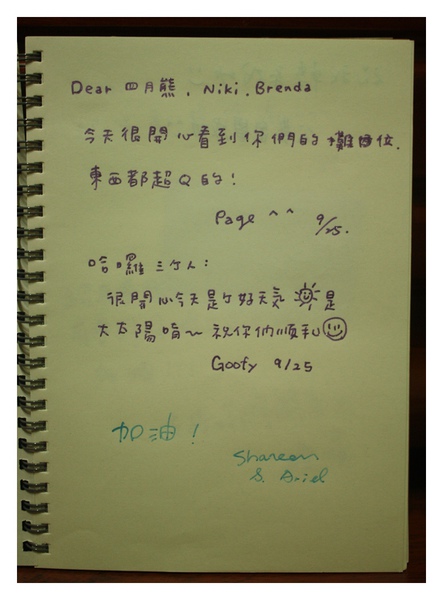 Dear 四月熊, Niki, Brenda
今天很開心看到你們的攤位.
東西都超Q的!
Page ^^ 9/25.
哈囉 三ㄍ人:
很開心今天是ㄍ好天氣 是
大太陽唷~ 祝你們順利
Goofy 9/25
加油!
Shareen
S. Ariel